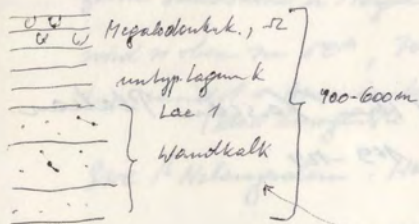 Megalodontenk., Ω
untyp Lagunk
Loc 1
Wandkalk
400-600m